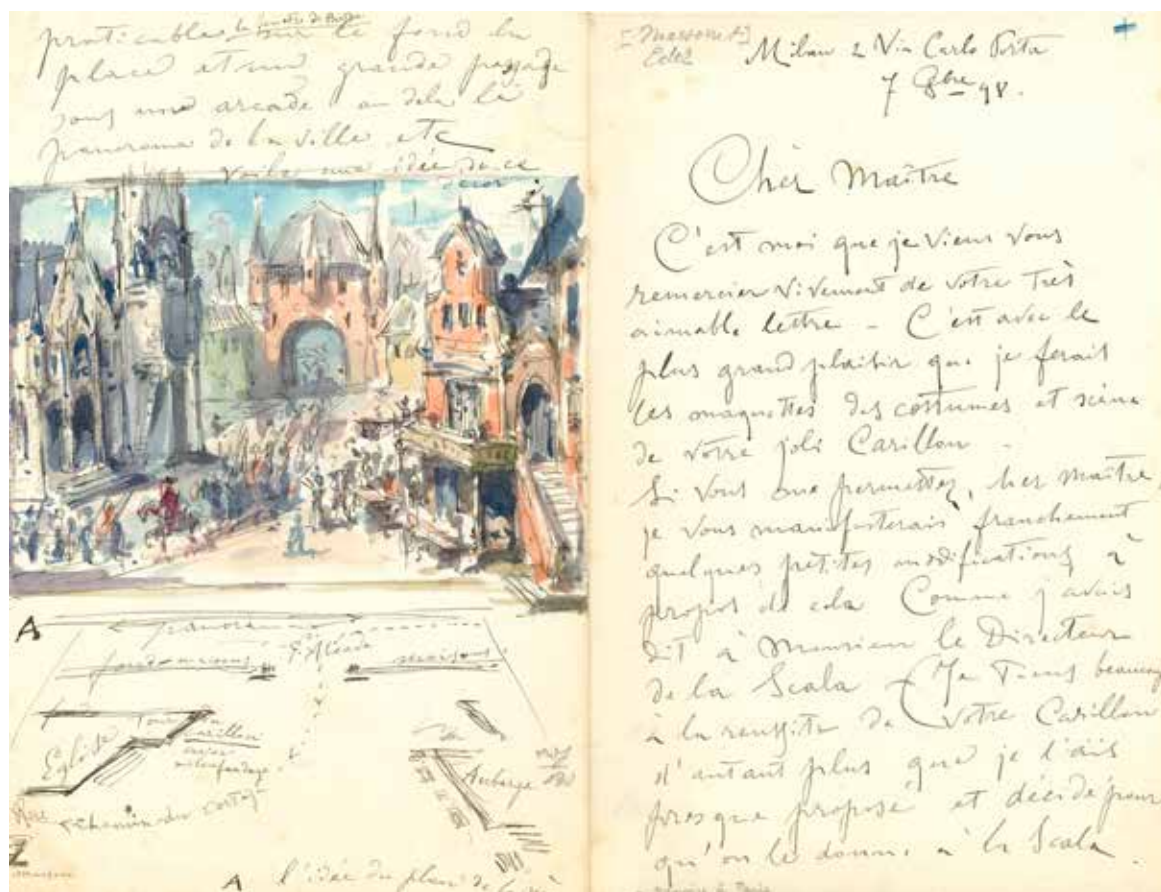 praticables sur le fond la
place et une grande passage
sous une arcade au dela le
panorama de la ville etc
voila une idée de ce
decor
A
panora
fond maisons
l'Arcade
maisons
Eglise
Tour du
carillon
avec
echafaudage
chemin du cortege
Rue
Auberge
maison
A l'idée du plan de la
Edel
Milan 2 Via Carlo Porta
7 8bre 98.
Cher Maître
C'est moi que je viens vous
remercier vivement de votre très
aimable lettre – C'est avec le
plus grand plaisir que je ferais
les maquettes des costumes et scène
de votre joli Carillon –
Si vous me permettez, cher maître,
je vous manifesterais franchement
quelques petites modifications à
propos de cela Comme j'avais
dit à Monsieur le Directeur
de la Scala – Je Tiens beaucoup
a la reussite de votre Carillon
d'autant plus que je l'ais
presque proposé et décidé pour
qu'on le donne à la Scala.